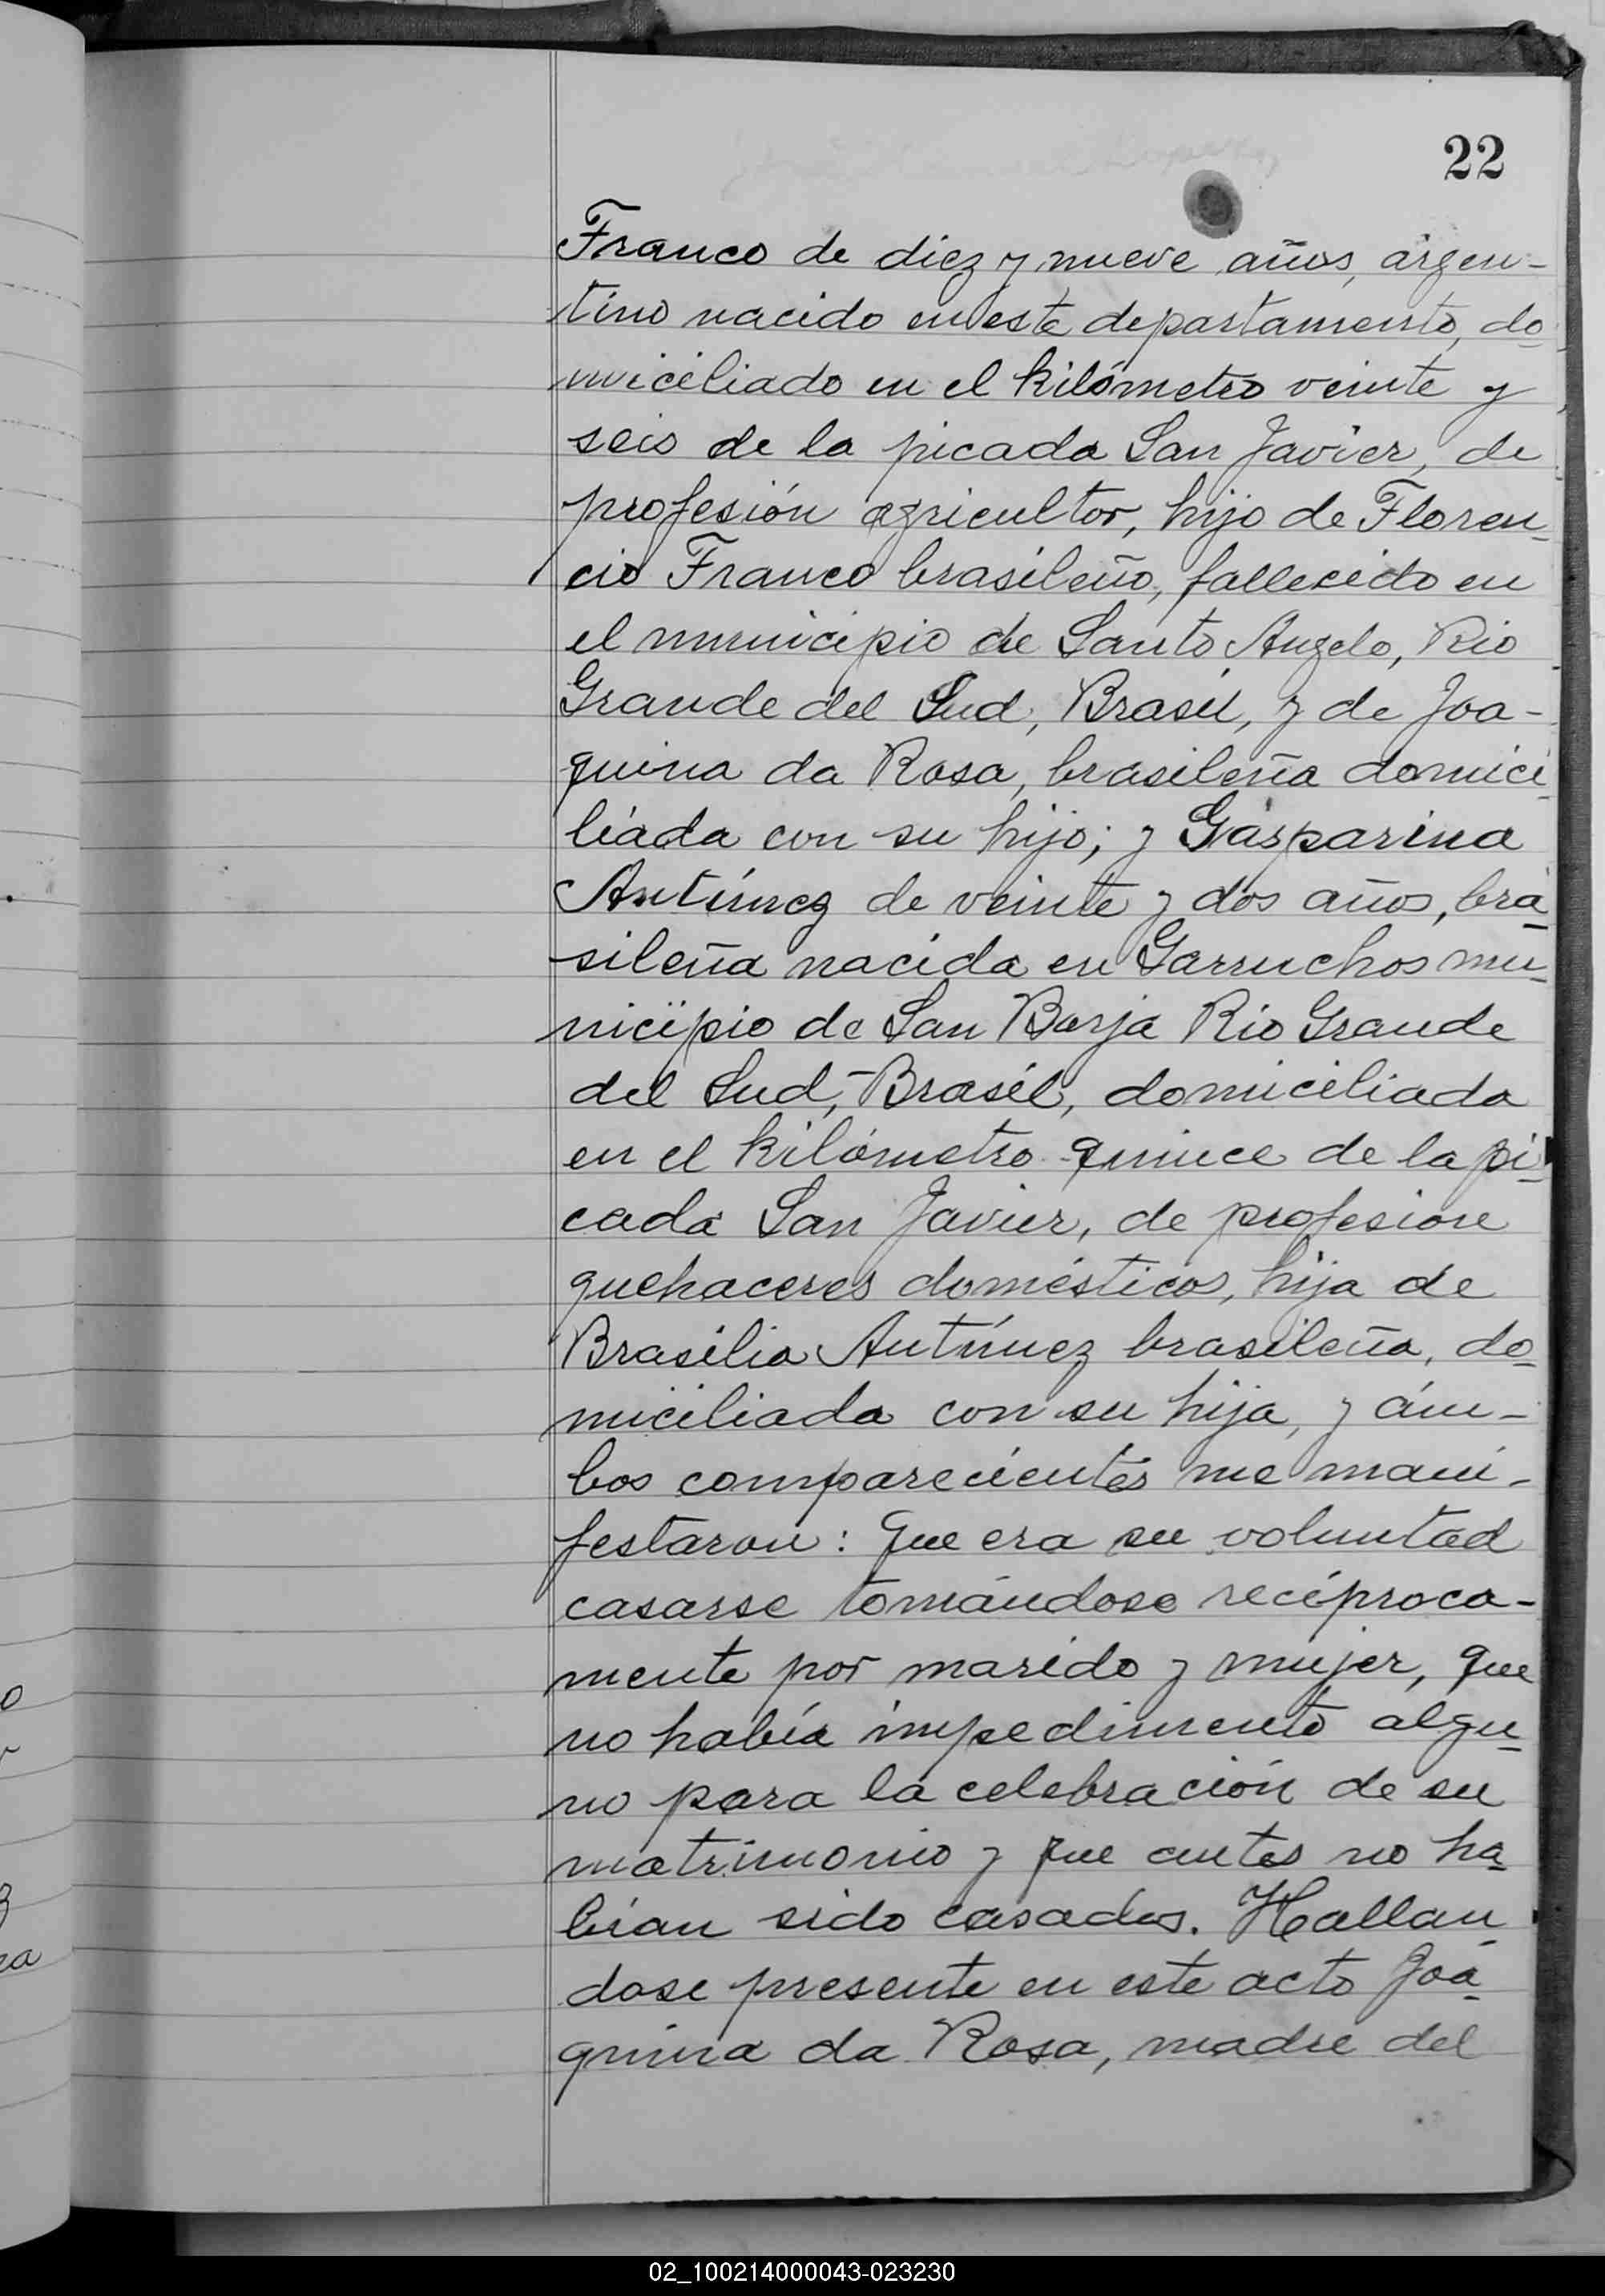 22
Franco de diez y nueve años, argen-
tino nacido en este departamento, do
miciliado en el kilómetro veinte y
seis de la picada San Javier, de
profesión agricultor, hijo de Floren
cio Franco brasileño, fallecido en
el municipio de Santo Angelo, Rio
Grande del Sud, Brasil, y de Joa-
quina da Rosa, brasileña domici
liada con su hijo; y Gasparina
Antúnez de veinte y dos años, bra
sileña nacida en Garruchos mu
nicipio de San Borja Rio Grande
del Sud, Brasil, domiciliada
en el kilómetro quince de la pi
cada San Javier, de profesion
quehaceres domésticos, hija de
Brasilia Antúnez brasileña, do
miciliada con su hija, y ám-
bos comparecientes me mani-
festaron: Que era su voluntad
casarse tomándose recíproca-
mente por marido y mujer, que
no había impedimento algu
no para la celebración de su
matrimonio y que antes no ha
bian sido casados. Hallan
dose presente en este acto Joa
quina da Rosa, madre del
02_100214000043-023230